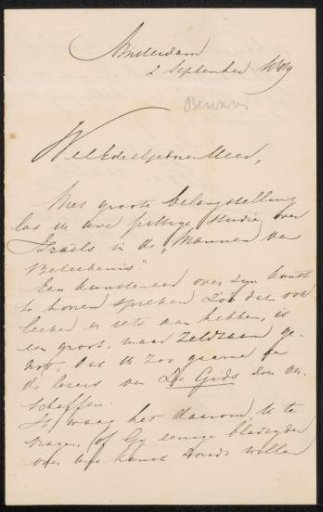 Amsterdam
2 September
Bewaren
WelEdelgeboren Heer,
Met groote belangstelling
las ik uwe pittige studie over
Israëls in de "Mannen van
Beteekenis".
Een kunstenaar over zijn kunst
te hooren spreken zoo dat ook
leeken er iets aan hebben, is
een groot, maar zeldzaam ge-
not, dat ik zoo gaarne aan
de lezers van De Gids zou ver-
schaffen.
Ik waag het daarom U te
vragen, of Gij eenige bladzijden
over uwe kunst zoudt willen